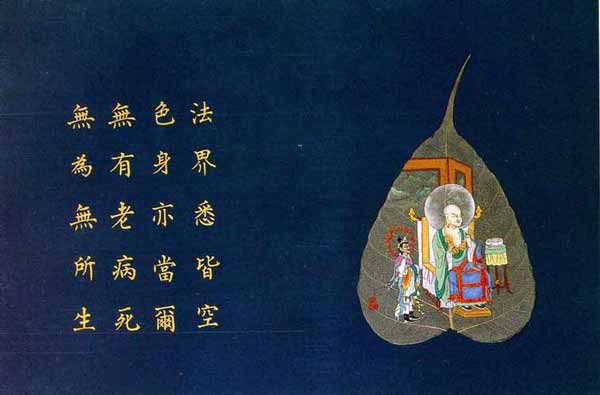 法界悉皆空
色身亦當爾
無有老病死
無為無所生